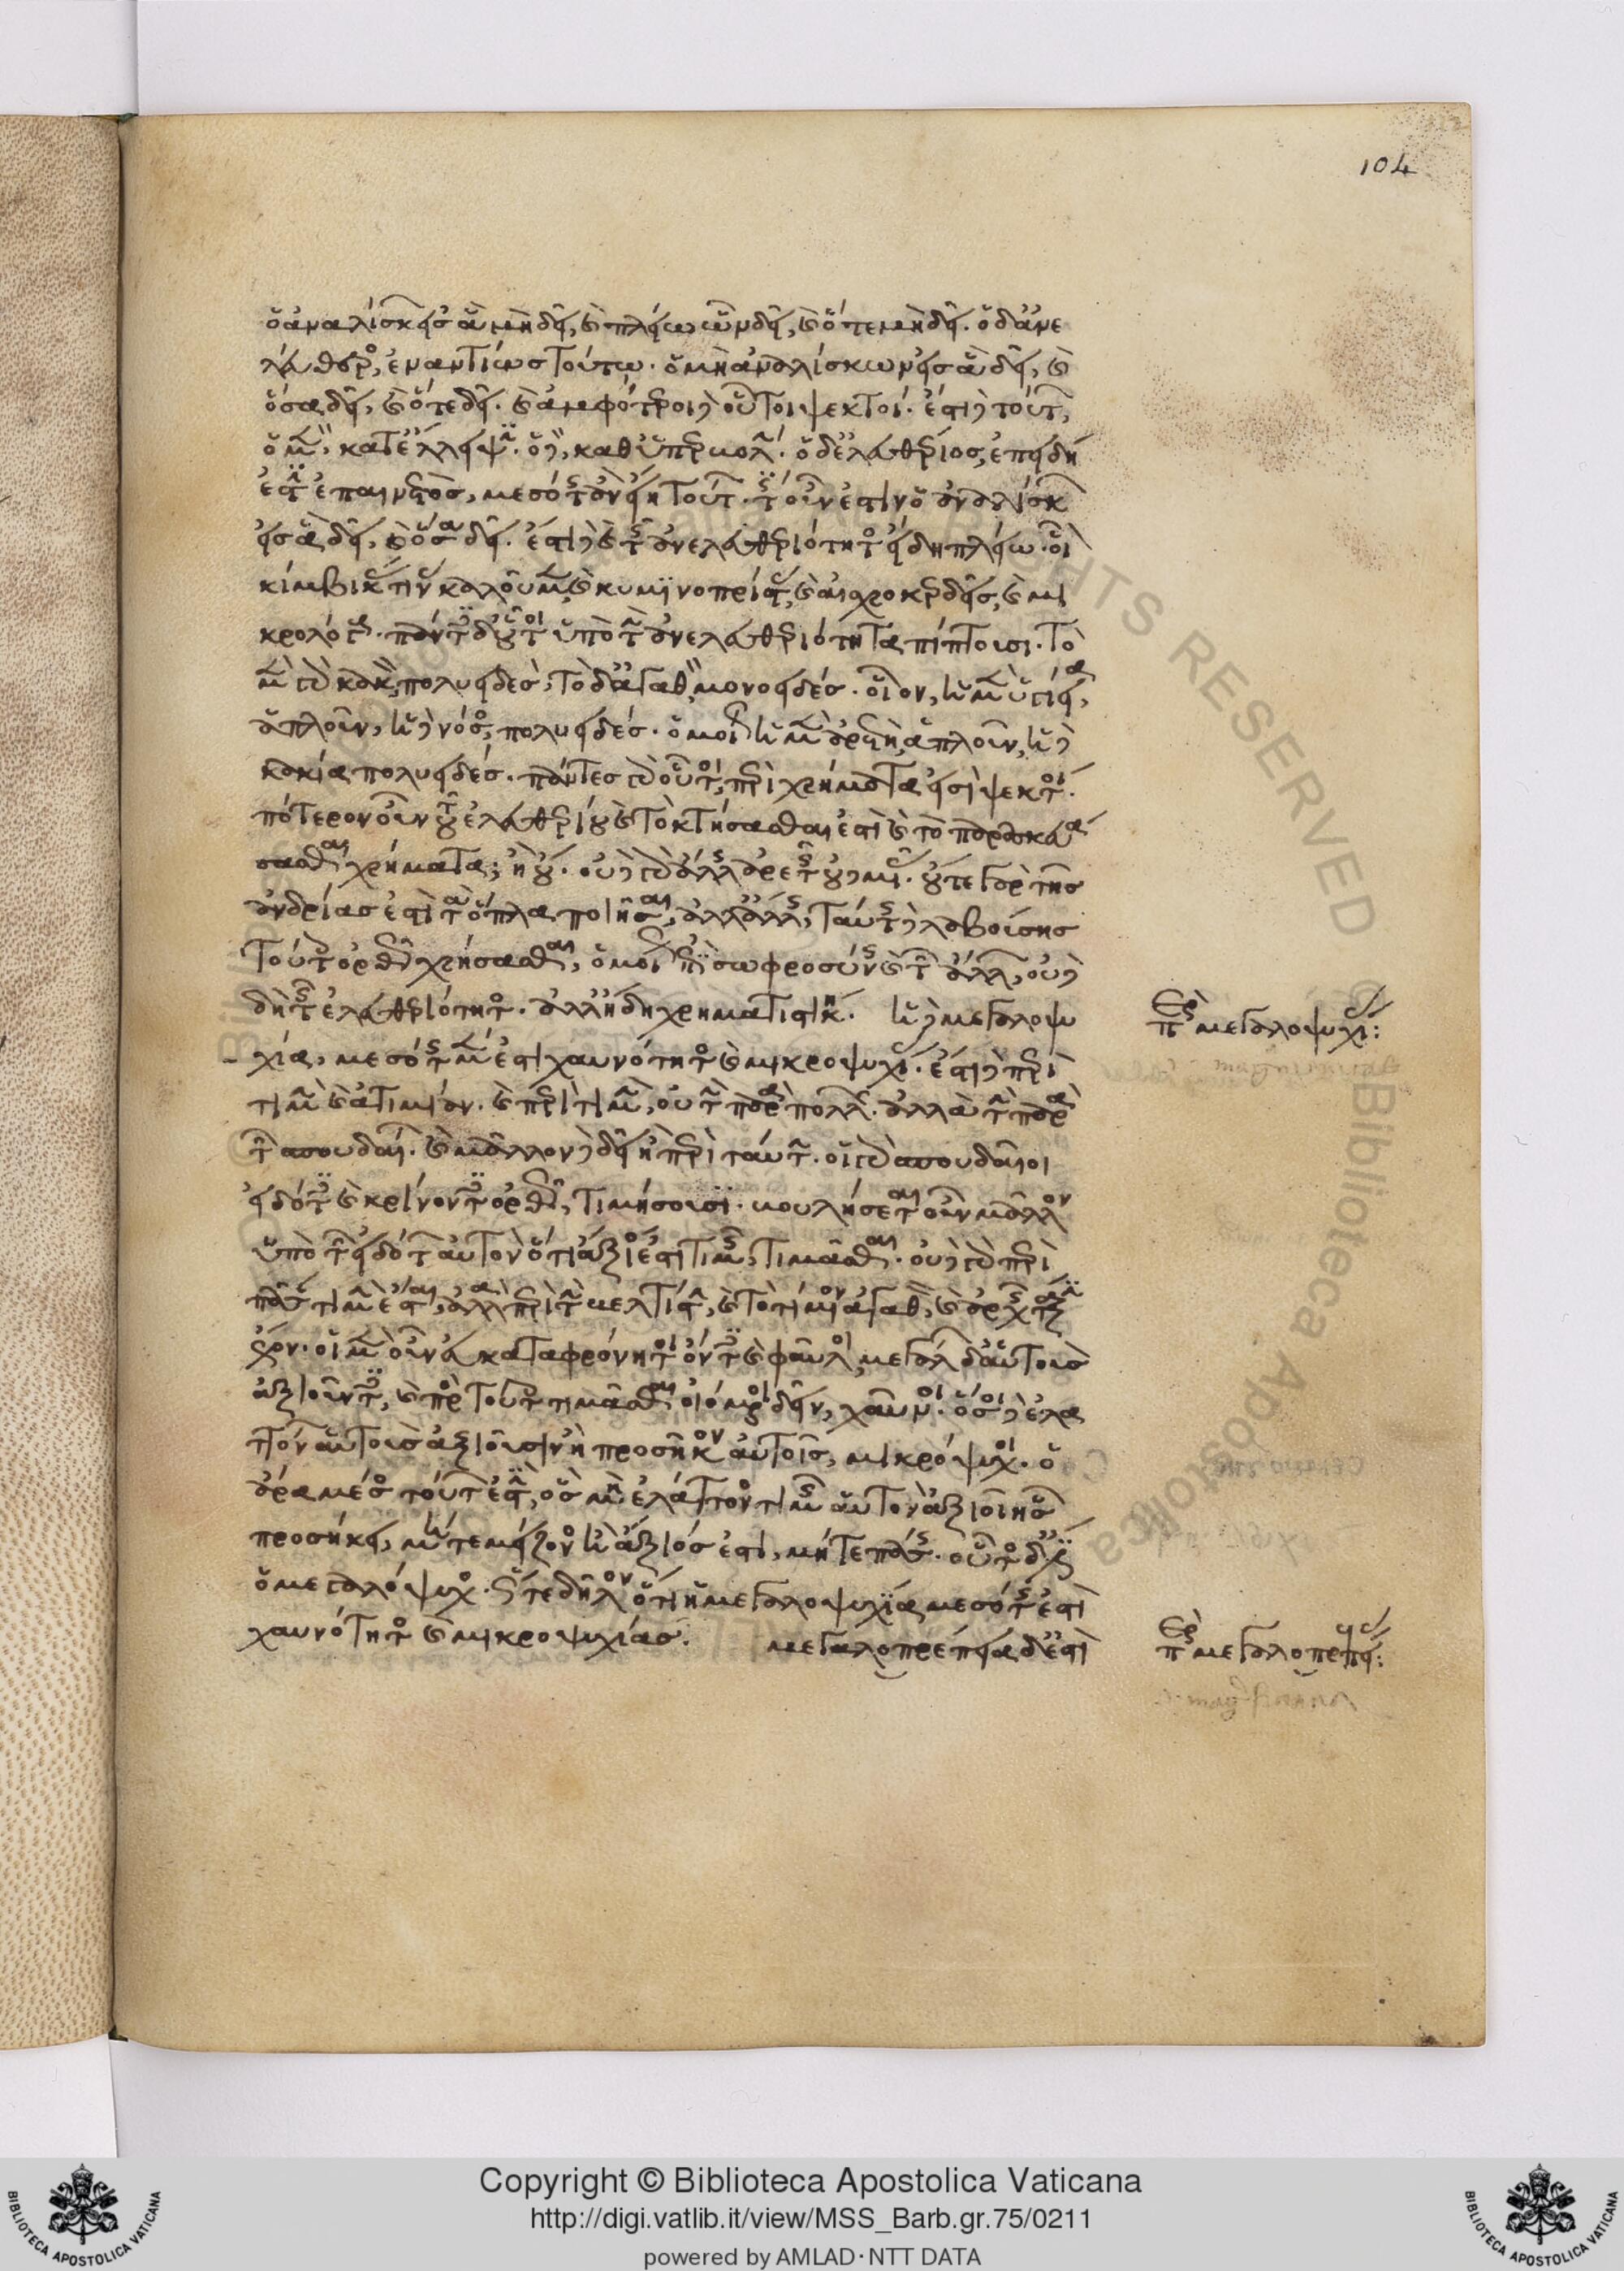 ὁ ἀναλίσκων εἰς ἃ μὴ δεῖ, καὶ πλείω ὧν δεῖ, καὶ ὅτε μὴ δεῖ. ὁ δ' ἀνε
λεύθερος, ἐναντίως τούτῳ. ὁ μὴ ἀναλίσκων εἰς ἃ δεῖ, καὶ
ὅσα δεῖ, καὶ ὅτε δεῖ. καὶ ἀμφότεροι δὲ οὗτοι ψεκτοί. ἔστι δὲ τούτων,
ὁ μὲν, κατ' ἔλλειψιν. ὁ δὲ, καθ' ὑπερβολήν. ὁ δ' ἐλευθέριος, ἐπειδή
ἐστιν ἐπαινετὸς, μεσότης ἂν εἴη τούτων. τίς οὖν ἐστιν ὁ ἀναλίσκων
εἰς ἃ δεῖ, καὶ ὅσα δεῖ. ἔστι δὲ καὶ τῆς ἀνελευθεριότητος εἴδη πλείω. οἷον
κίμβικάς τινας καλοῦμεν, καὶ κυμινοπρίστας, καὶ αἰσχροκερδεῖς, καὶ μι
κρολόγους. πάντες δ' οὗτοι ὑπὸ τὴν ἀνελευθεριότητα πίπτουσι. τὸ
μὲν γὰρ κακὸν, πολυειδές, τὸ δ' ἀγαθὸν, μονοειδές. οἷον, ἡ μὲν ὑγίεια,
ἁπλοῦν, ἡ δὲ νόσος, πολυειδές. ὁμοίως ἡ μὲν ἀρετὴ, ἁπλοῦν, ἡ δὲ
κακία πολυειδές. πάντες γὰρ οὗτοι, περὶ χρήματα εἰσὶ ψεκτοί.
πότερον οὖν τοῦ ἐλευθερίου καὶ τὸ κτήσασθαι ἐστὶ καὶ τὸ παρασκευά
σασθαι χρήματα; ἢ οὔ. οὐδὲ γὰρ ἄλλης ἀρετῆς οὐδεμιᾶς. οὔτε γὰρ τῆς
ἀνδρίας ἐστὶ τὰ ὅπλα ποιῆσαι, ἀλλ' ἄλλης, ταύτης δὲ λαβούσης
τούτοις ὀρθῶς χρήσασθαι, ὁμοίως ἐπὶ σωφροσύνης καὶ τῶν ἄλλων, οὐδὲ
δὴ τῆς ἐλευθεριότητος. ἀλλ' ἤδη χρηματιστικῆς. ἡ δὲ μεγαλοψυ
χία, μεσότης μέν ἐστι χαυνότητος καὶ μικροψυχίας. ἔστι δὲ περὶ
τιμὴν καὶ ἀτιμίαν. καὶ περὶ τιμὴν, οὐ τὴν παρὰ πολλῶν. ἀλλὰ τὴν παρὰ
τῶν σπουδαίων. καὶ μᾶλλον δὲ δεῖ ἢ περὶ ταύτην. οἱ γὰρ σπουδαῖοι
εἰδότες καὶ κρίνοντες ὀρθῶς, τιμήσουσι. βουλήσεται οὖν μᾶλλον
ὑπὸ τῶν εἰδότων αὐτὸν ὅτι ἄξιός ἐστι τιμῆς, τιμᾶσθαι. οὐδὲ γὰρ περὶ
πᾶσαν τιμὴν ἔσται, ἀλλὰ περὶ τὴν βελτίστην, καὶ τὸ τίμιον ἀγαθὸν, καὶ ἀρχῆς τάξιν
ἔχον. οἱ μὲν οὖν εὐκαταφρόνητοι ὄντες καὶ φαῦλοι, μεγάλων δ' αὑτοὺς
ἀξιοῦντες, καὶ πρὸς τούτοις τιμᾶσθαι οἰόμενοι δεῖν, χαῦνοι. ὅσοι δὲ ἐλατ
τόνων αὑτοὺς ἀξιοῦσιν ἢ προσῆκον αὐτοῖς, μικρόψυχοι. ὁ
ἄρα μέσος τούτων ἐστὶν, ὃς μήτε ἐλάττονος τιμῆς αὑτὸν ἀξιοῖ ἢ ὡς
προσήκει, μήτε μείζονος ἢ ἄξιός ἐστι, μήτε πάσης. οὗτος δ' ἐστὶν
ὁ μεγαλόψυχος. ὥστε δῆλον ὅτι ἡ μεγαλοψυχία μεσότης ἐστὶ
χαυνότητος καὶ μικροψυχίας. μεγαλοπρέπεια δ' ἐστὶ
περὶ μεγαλοψυχίας:
περὶ μεγαλοπρεπείας:
104
Copyright © Biblioteca Apostolica Vaticana
http://digi.vatlib.it/view/MSS_Barb.gr.75/0211
powered by AMLAD·NTT DATA
BIBLIOTECA APOSTOLICA VATICANA
BIBLIOTECA APOSTOLICA VATICANA